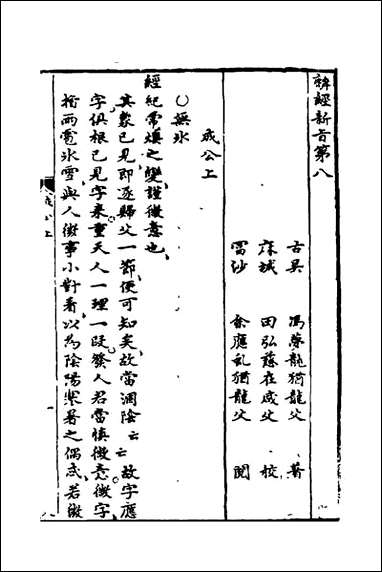 麟經新旨第八
古吳 馮夢龍猶龍父 著
麻城 田弘慈在咸父 校
雷沙 余應虬猶龍父 閱
成公上
○無氷
經紀常燠之變謹微意也
其義已見即逐歸父一節便可知矣故當涸陰云云故字應
字俱根已見字來重天人一理一段發人君當慎微意微字
指雨雹氷雪與人微事小對看以為陰陽槩著之偶忒若微
成公上